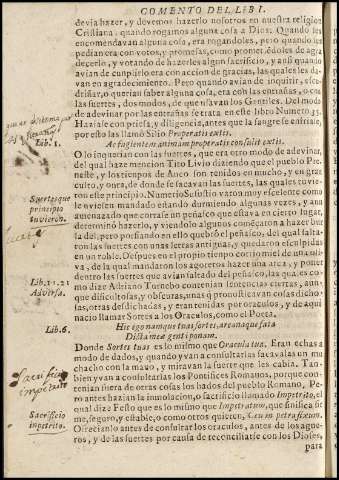 COMENTO DEL LIB I.
devia hazer, y devemos hazerlo nosotros en nuestra religion
Cristiana, quando rogamos alguna cosa a Dios. Quando les
encomendavan alguna cosa, era rogandoles, pero quando les
pedian era con votos, y promesas, como prometiédoles de agra
decerlo, y votando de hazerles algun sacrificio, y ansi quando
avian de cunplirlo era con accion de gracias, las quales les da-
van en agradecimento. Pero quando avian de inquirir, escu-
driñar, o querian saber alguna cosa, era con las entrañas, o con
las suertes, dos modos, de que usavan los Gentiles. Del modo
de adevinar por las entrañas se trata en este libro Numero 35.
Haziase con priesa, y diligencia, antes que la sangre se enfriase,
por esto las llamò Silio Properatis extis.
Lib. 1.
Ac fugientem animam properatis consulit extis.
O lo inquerian con las suertes, que era otro modo de adevinar,
del qual haze mencion Tito Livio diziendo que el pueblo Pre-
neste, y los tienpos de Anco son tenidos en mucho, y en gran
culto, y onra, de donde se sacavan las suertes, las quales tuvie-
Suertes que
principio
tuvieron.
ron este principio. Numerio Sufustio varon muy escelente como
le uviesen mandado estando durmiendo algunas vezes, y aun
amenazado que cortase un peñasco que estava en cierto lugar,
determinó hazerlo, y viendolo algunos començaron a hazer bur
la del, pero porfiando en ello quebrò el peñasco, del qual salta-
ron las suertes con unas letras antiguas, y quedaron esculpidas
en un roble. Despues en el propio tienpo corrio miel de una oli-
va, de la qual mandaron los agoreros hazer una arca, y poner
dentro las suertes que avian saltado del peñasco, las quales co-
Lib. 11. 21
Adversa.
mo dize Adriano Tornebo contenian sentencias ciertas, aun-
que dificultosas, y obscuras, unas q pronosticavan cosas dicho-
sas, otras desdichadas, y eran tenidas por oraculos, y de aqui
nacio llamar Sortes a los Oraculos, como el Poeta.
Lib. 6.
Hic ego namque tuas sortes, arcanaque fata
Dicta meæ genti ponam.
Donde Sortes tuas es lo mismo que Oracula tua. Eran echas a
modo de dados, y quando y van a consultarlas sacavalas un mu
chacho con la mano, y miravan la suerte que les cabia. Tan
bien y van a consultarlas los Pontifices Romanos, porque con-
tenian fuera de otras cosas los hados del pueblo Romano. Pe
ro antes hazian la inmolacion, o sacrificio llamado Inpetrito, el
qual dize Festo que es lo mismo que Inpetratum, que sinifica fir
Sacrificio
inpetrito.
me, seguro, y estable, o como otros quieren, Saxum petrafixum.
Ofrecianlo antes de consultar los oraculos, antes de los ague-
ros, y de las suertes por causa de reconciliarse con los Dioses,
para